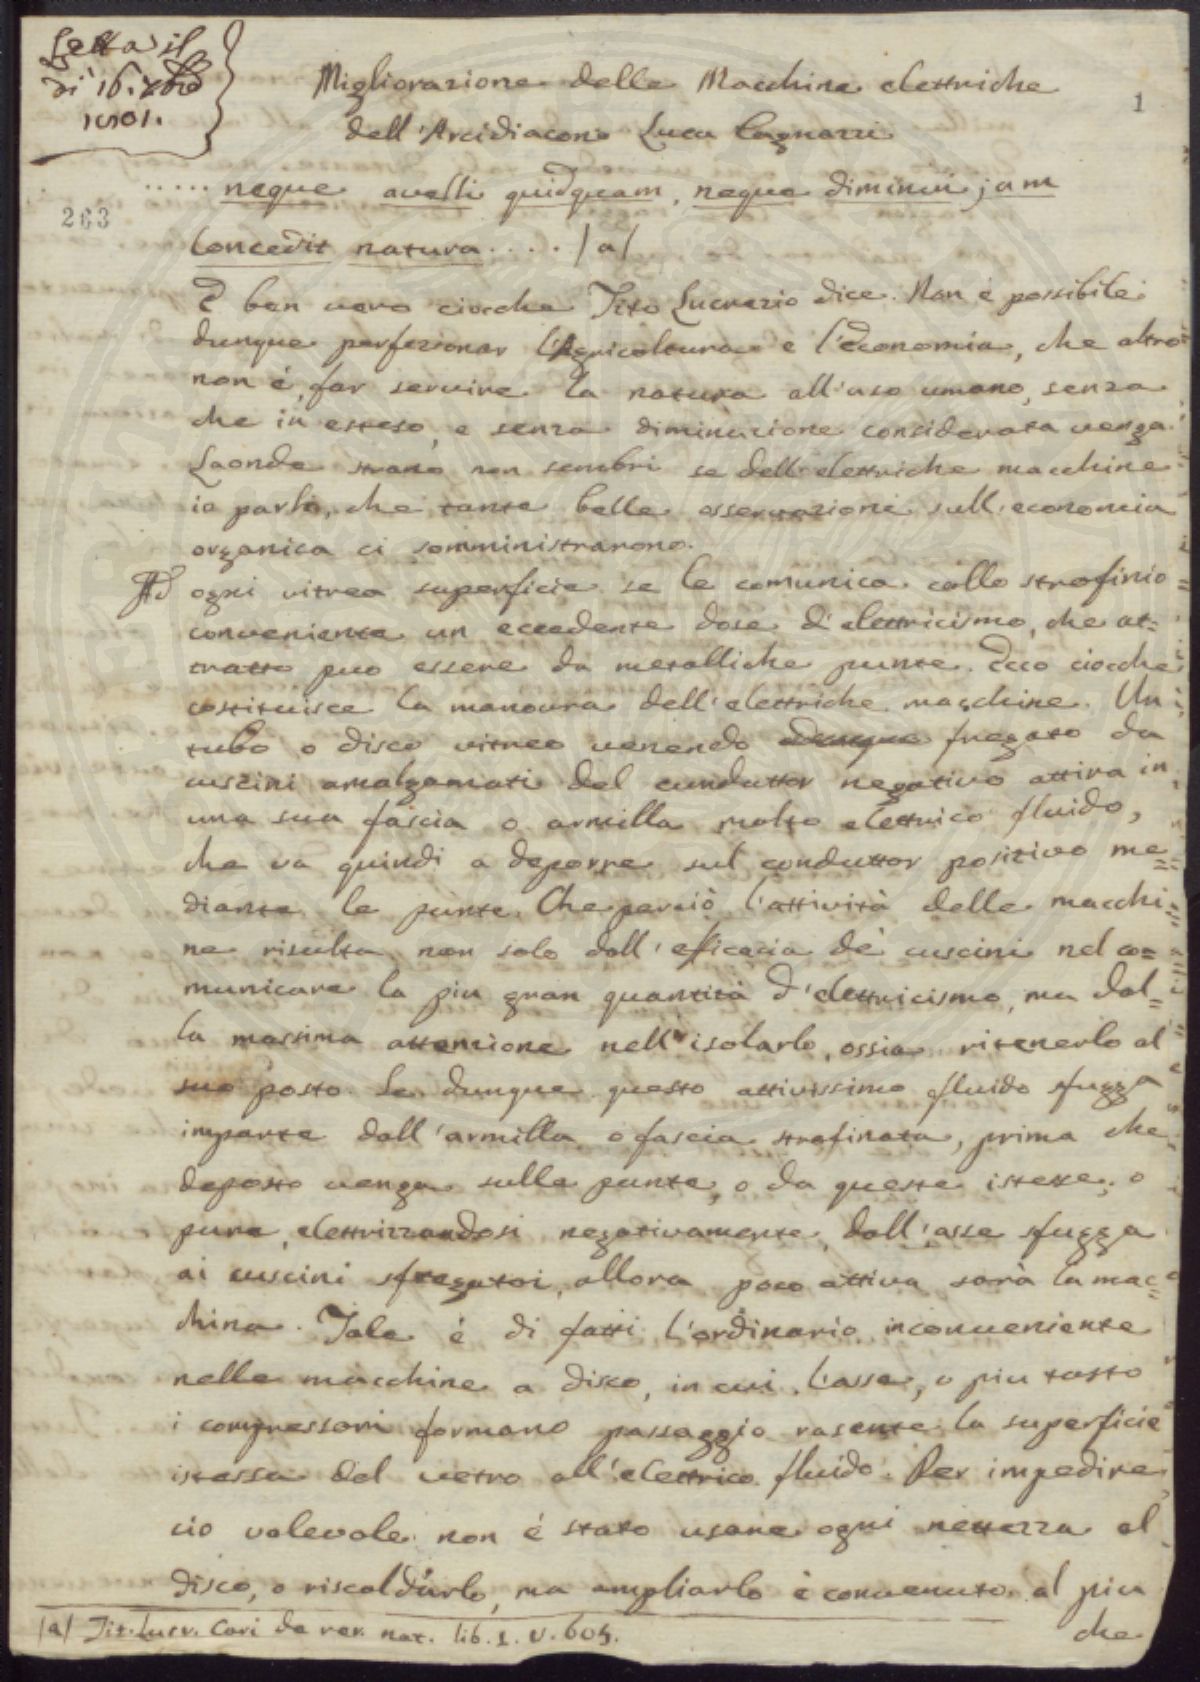 Letta il
dì 16. 7bre
1801.
1
Migliorazione delle Macchine elettriche
dell'Arcidiacono Luca Cagnazzi
..... neque avelli quidquam, neque diminui jam
263
Concedit natura.... /a/
È ben vero ciocche Tito Lucrezio dice. Non è possibile
dunque perfezionar l'Agricoltura e l'economia, che altro
non è, far servire la natura all'uso umano, senza
che in esteso, e senza diminuzione considerata venga.
Laonde strano non sembri se dell'elettriche macchine
io parlo, che tante belle osservazioni sull'economia
organica ci somministrarono.
Ad ogni vitrea superficie se le comunica collo strofinio
conveniente un eccedente dose d'elettricismo, che at=
tratto puo essere da metalliche punte. Ecco ciocche
costituisce la manovra dell'elettriche macchine. Un
tubo o disco vitreo venendo dunque fregato da
cuscini amalgamati del conduttor negativo attira in
una sua fascia o armilla molto elettrico fluido,
che va quindi a deporre sul conduttor positivo me=
diante le punte. Che perciò l'attività delle macchi=
ne risulta non solo dall'eficacia de' cuscini nel co=
municare la piu gran quantità d'elettricismo, ma dal=
la massima attenzione nell'isolarlo, ossia ritenerlo al
suo posto. Se dunque questo attivissimo fluido sfugga
imparte dall'armilla o fascia strofinata, prima che
deposto venga sulle punte, o da queste istesse, o
pure, elettrizzandosi negativamente, dall'asse sfugga
ai cuscini sfregatoi, allora poco attiva sarà la mac=
china. Tale è di fatti l'ordinario inconveniente
nelle macchine a disco, in cui l'asse, o piu tosto
i compressori formano passaggio rasente la superficie
istessa del vetro all'elettrico fluido. Per impedire
cio valevole non è stato usare ogni nettezza al
disco, o riscaldarlo, ma ampliarlo è convenuto al piu
che
/a/ Tit. Lucr. Cari de rer. nat. lib. 1. v. 605.